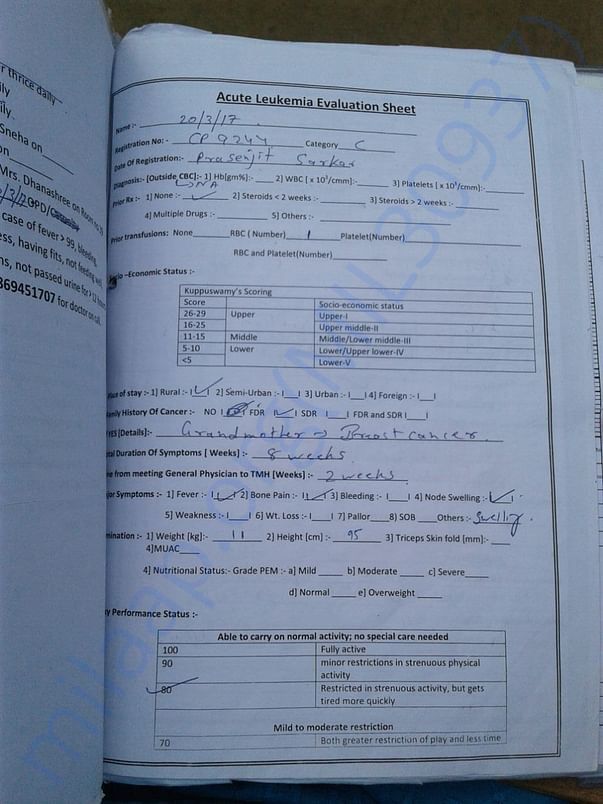 r thrice daily
ily
ily.
Sneha on
on
Mrs. Dhanashree on Room no
OPD/
case of fever > 99, bleeding,
ess, having fits, not feeding well,
ns, not passed urine for > 12 hours
869451707 for doctor on call.
Acute Leukemia Evaluation Sheet
Name :- 20/3/17
Registration No: - CP 9244 Category C
Date Of Registration:- Prasenjit Sarkar
Diagnosis:- [Outside CBC]:- 1) Hb[gm%]:- 2) WBC [ x 10³/cmm]:- 3) Platelets [ x 10³/cmm]:-
NA
Prior Rx:- 1] None :- ✓ 2] Steroids < 2 weeks :- 3] Steroids > 2 weeks :-
4] Multiple Drugs :- 5] Others :-
Prior transfusions: None RBC ( Number) 1 Platelet(Number)
RBC and Platelet(Number)
io –Economic Status :-
Kuppuswamy's Scoring
Score Socio-economic status
26-29 Upper Upper-I
16-25 Upper middle-II
11-15 Middle Middle/Lower middle-III
5-10 Lower Lower/Upper lower-IV
<5 Lower-V
ace of stay :- 1] Rural :- I ✓ I 2] Semi-Urban :- I I 3] Urban :- I I 4] Foreign :- I I
amily History Of Cancer :- NO I I FDR I ✓ I SDR I I FDR and SDR I I
YES [Details]:- Grandmother → Breast cancer.
tal Duration Of Symptoms [ Weeks] :- 8 weeks
me from meeting General Physician to TMH [Weeks] :- 2 weeks
jor Symptoms :- 1] Fever :- I ✓ I 2] Bone Pain :- I ✓ I 3] Bleeding :- I I 4] Node Swelling :- ✓ I
5] Weakness :- I I 6] Wt. Loss :- I I 7] Pallor 8] SOB Others :- Swelling.
mination :- 1] Weight [kg]:- 11 2] Height [cm] :- 95 3] Triceps Skin fold [mm]:-
4]MUAC
4] Nutritional Status:- Grade PEM :- a] Mild b] Moderate c] Severe
d] Normal e] Overweight
y Performance Status :-
Able to carry on normal activity; no special care needed
100 Fully active
90 minor restrictions in strenuous physical
activity
✓ 80 Restricted in strenuous activity, but gets
tired more quickly
Mild to moderate restriction
70 Both greater restriction of play and less time